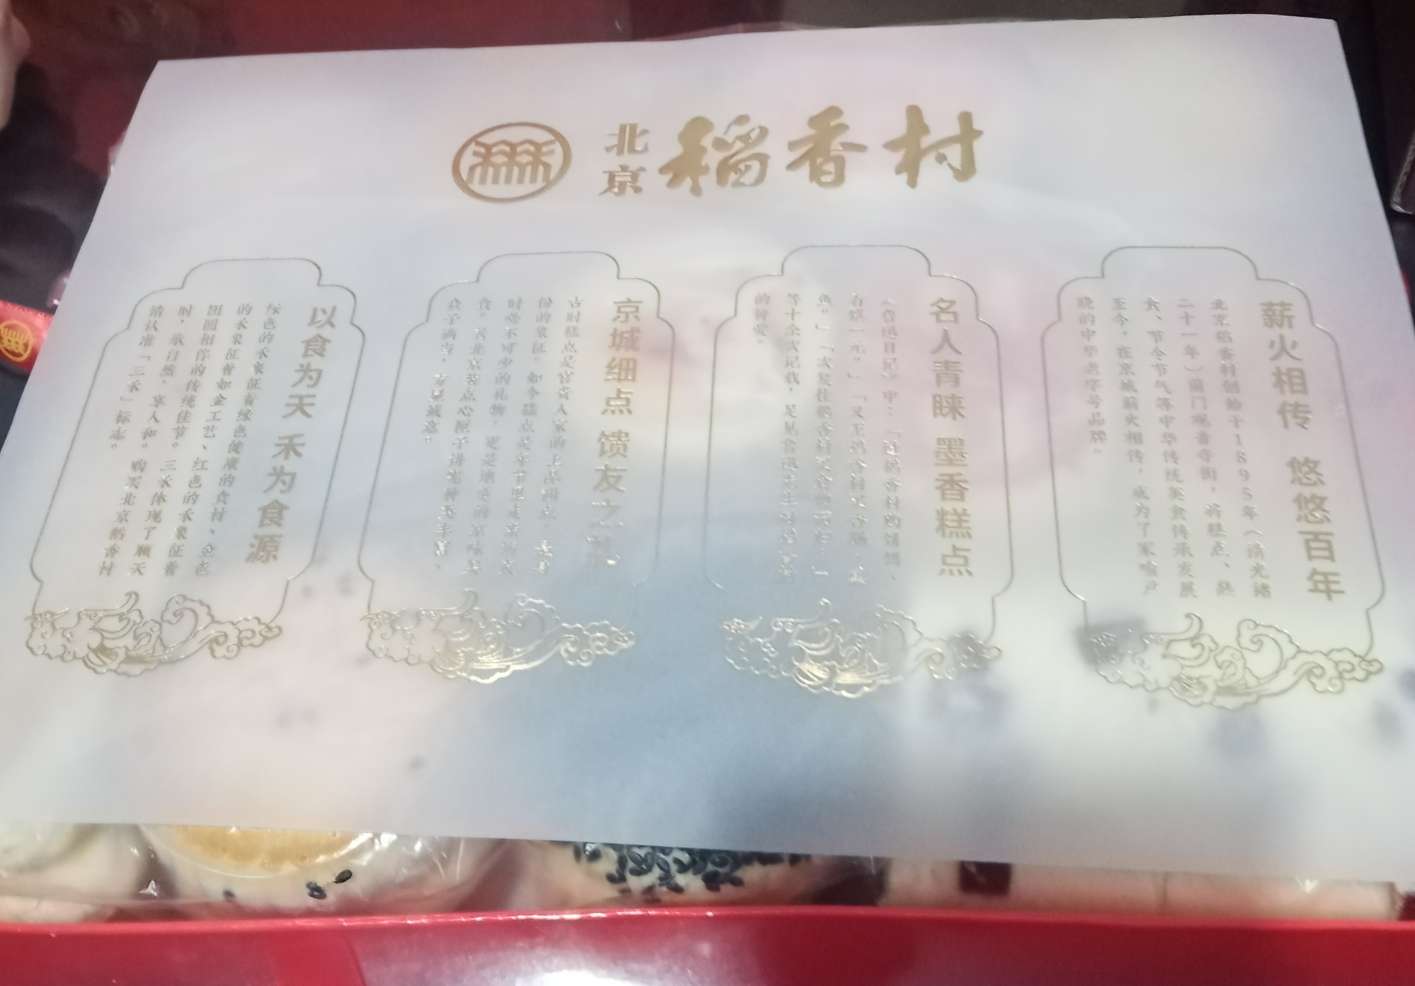 北京稻香村
薪火相传 悠悠百年
北京稻香村创始于1895年（清光绪
二十一年）前门观音寺街，将糕点、熟
食、节令节气等中华传统美食传承发展
至今，在京城薪火相传，成为了家喻户
晓的中华老字号品牌。
名人青睐 墨香糕点
《鲁迅日记》中：「过稻香村购饼饵、
存肆一元。」「又至稻香村
鱼。」「次复往稻香村买食物
等十余次记载，足见鲁迅先生对稻香
的钟爱。
京城细点 馈友之
古时糕点是官贵人家的上品细点，
份的象征。如今糕点是年节里走亲
时必不可少的礼物，更是地道的京味
食。
以食为天 禾为食源
绿色的禾象征着绿色健康的食材、金色
的禾象征着如金工艺、红色的禾象征着
团圆相伴的传统佳节。三禾体现了顺天
时，承自然，享人和。购买北京稻香村
请认准「三禾」标志。